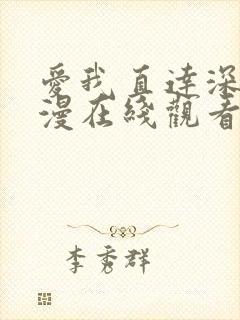 愛我直達深
漫在綫觀看
李秀群